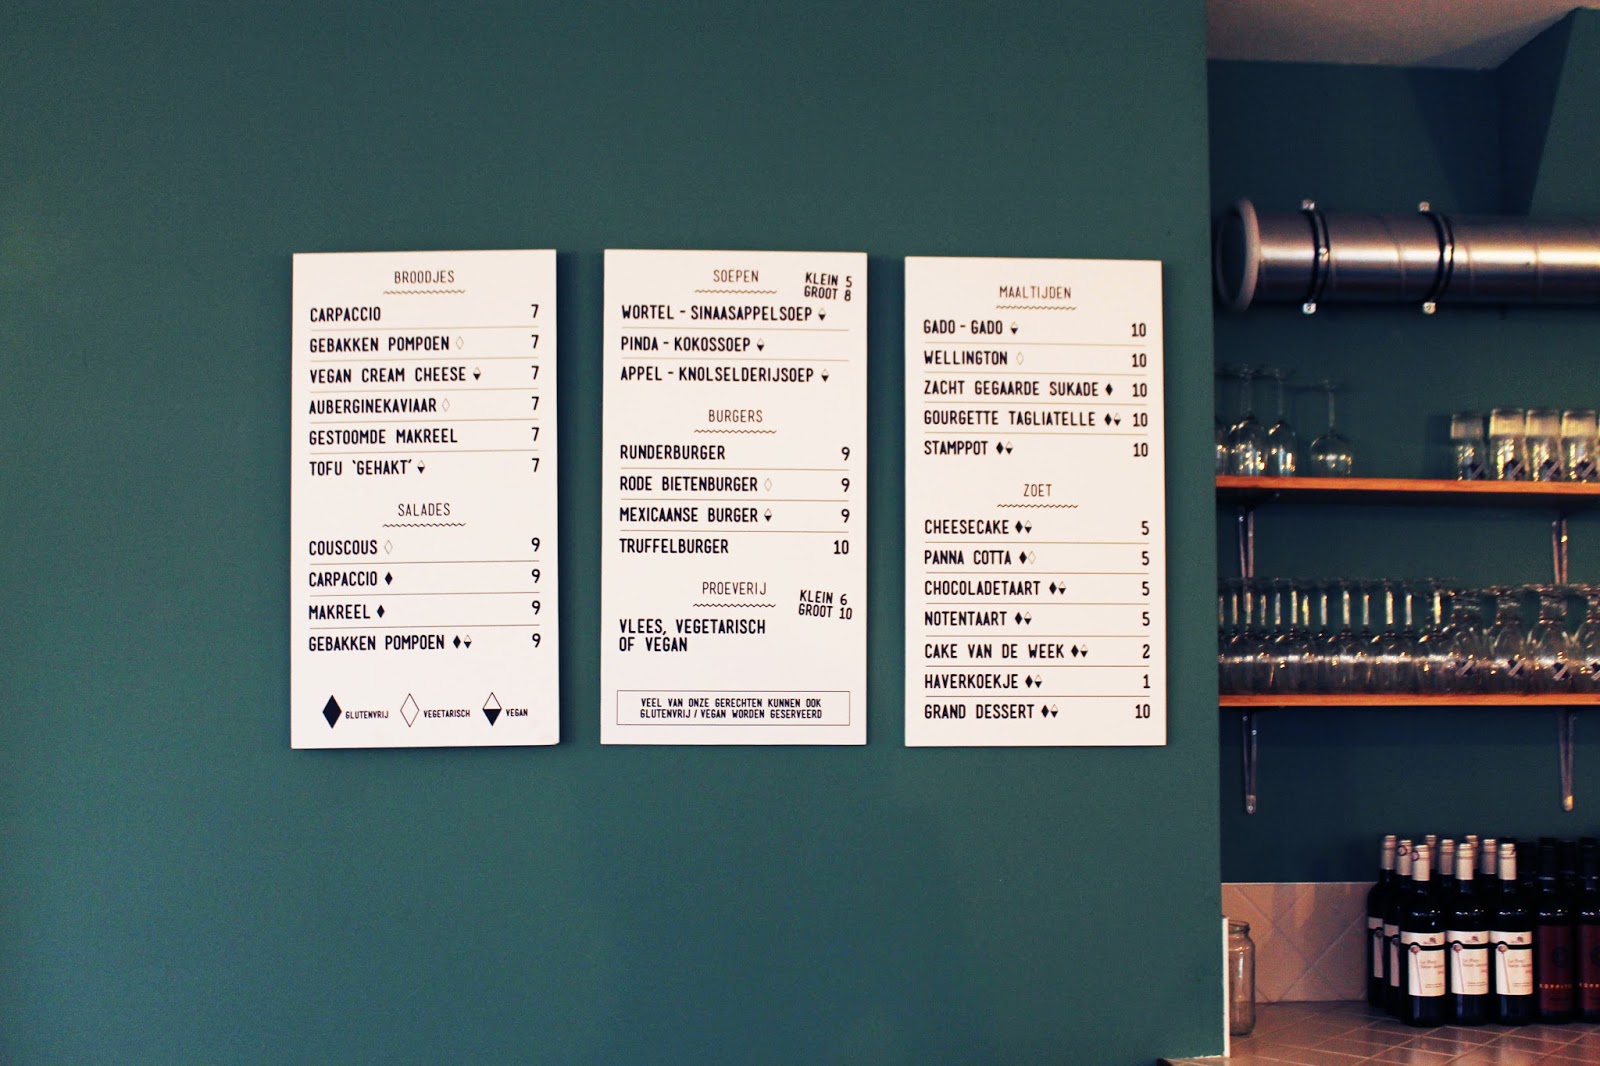 BROODJES
CARPACCIO 7
GEBAKKEN POMPOEN 7
VEGAN CREAM CHEESE 7
AUBERGINEKAVIAAR 7
GESTOOMDE MAKREEL 7
TOFU 'GEHAKT' 7
SALADES
COUSCOUS 9
CARPACCIO 9
MAKREEL 9
GEBAKKEN POMPOEN 9
GLUTENVRIJ VEGETARISCH VEGAN
SOEPEN
KLEIN 5
GROOT 8
WORTEL - SINAASAPPELSOEP
PINDA - KOKOSSOEP
APPEL - KNOLSELDERIJSOEP
BURGERS
RUNDERBURGER 9
RODE BIETENBURGER 9
MEXICAANSE BURGER 9
TRUFFELBURGER 10
PROEVERIJ
KLEIN 6
GROOT 10
VLEES, VEGETARISCH
OF VEGAN
VEEL VAN ONZE GERECHTEN KUNNEN OOK
GLUTENVRIJ / VEGAN WORDEN GESERVEERD
MAALTIJDEN
GADO - GADO 10
WELLINGTON 10
ZACHT GEGAARDE SUKADE 10
GOURGETTE TAGLIATELLE 10
STAMPPOT 10
ZOET
CHEESECAKE 5
PANNA COTTA 5
CHOCOLADETAART 5
NOTENTAART 5
CAKE VAN DE WEEK 2
HAVERKOEKJE 1
GRAND DESSERT 10